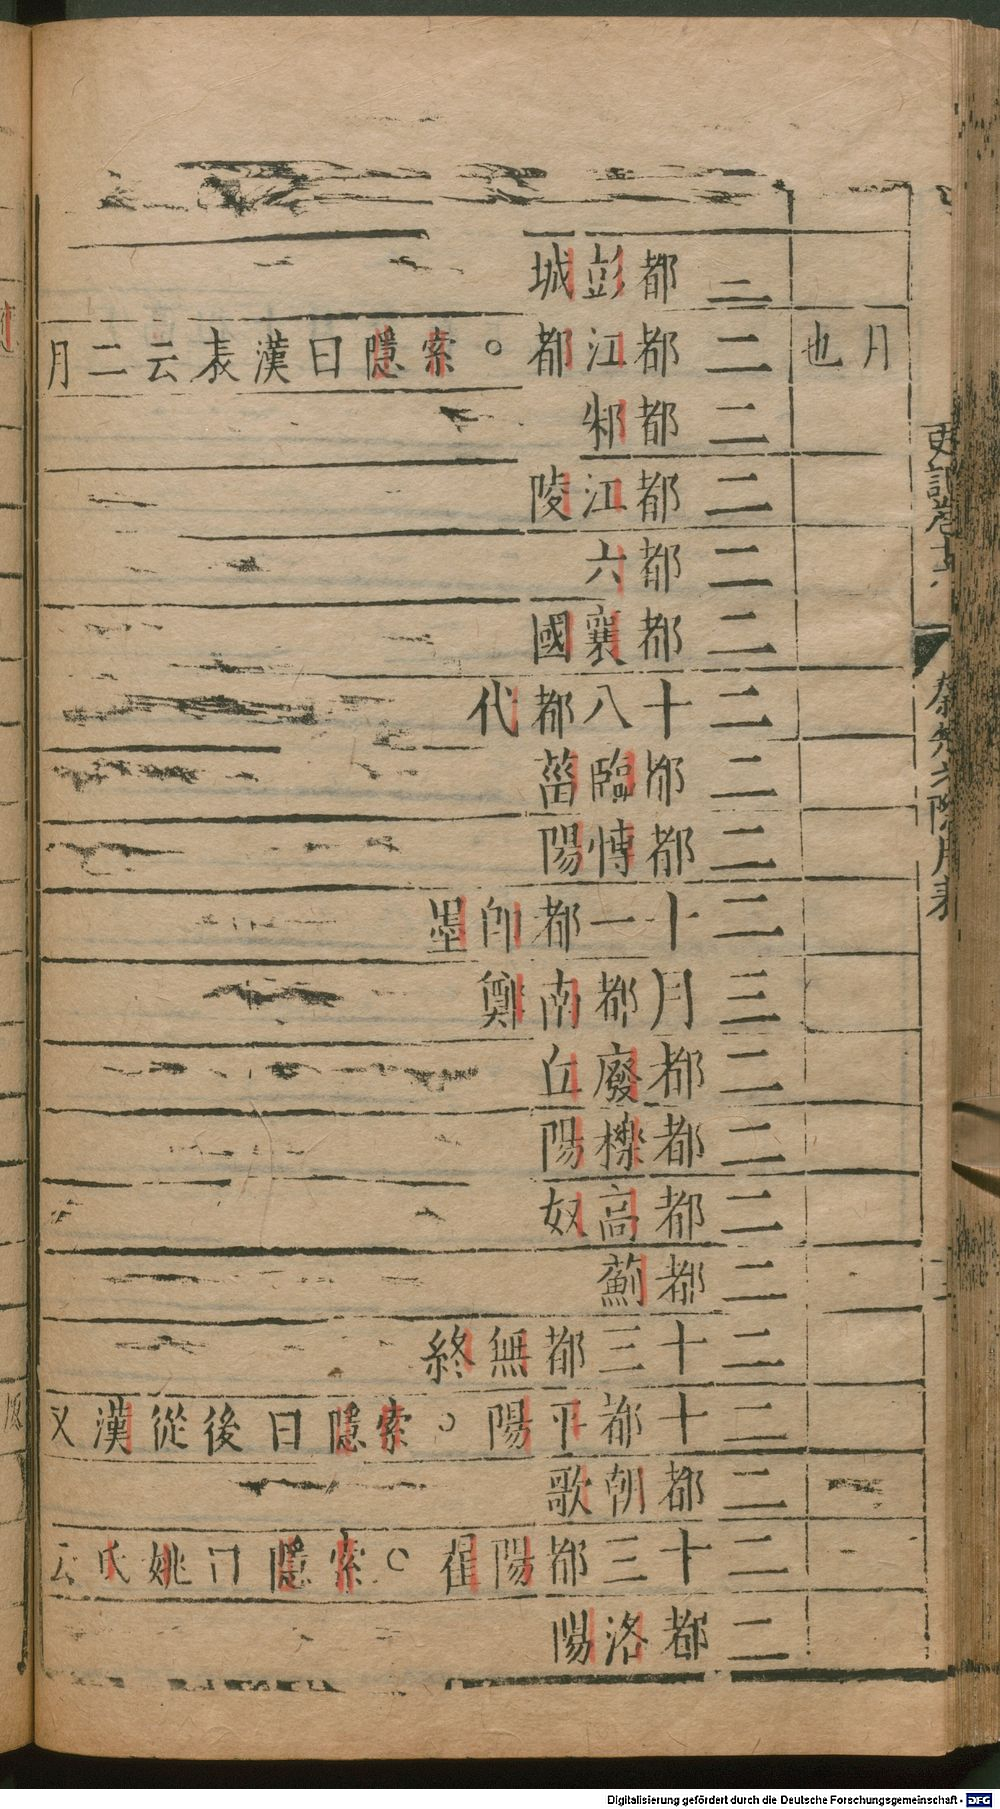 二都彭城
月也
二都江都。索隱曰漢表云二月
二都邾
二都江陵
二都六
二都襄國
二十八都代
二都臨菑
二都博陽
二十一都卽墨
三月都南鄭
二都廢丘
二都櫟陽
二都高奴
二都薊
二十三都無終
三十都平陽。索隱曰後從漢又
二都朝歌
二十三都陽翟。索隱曰姚氏云
二都洛陽
史記卷十六
秦楚之際月表
Digitalisierung gefördert durch die Deutsche Forschungsgemeinschaft - DFG